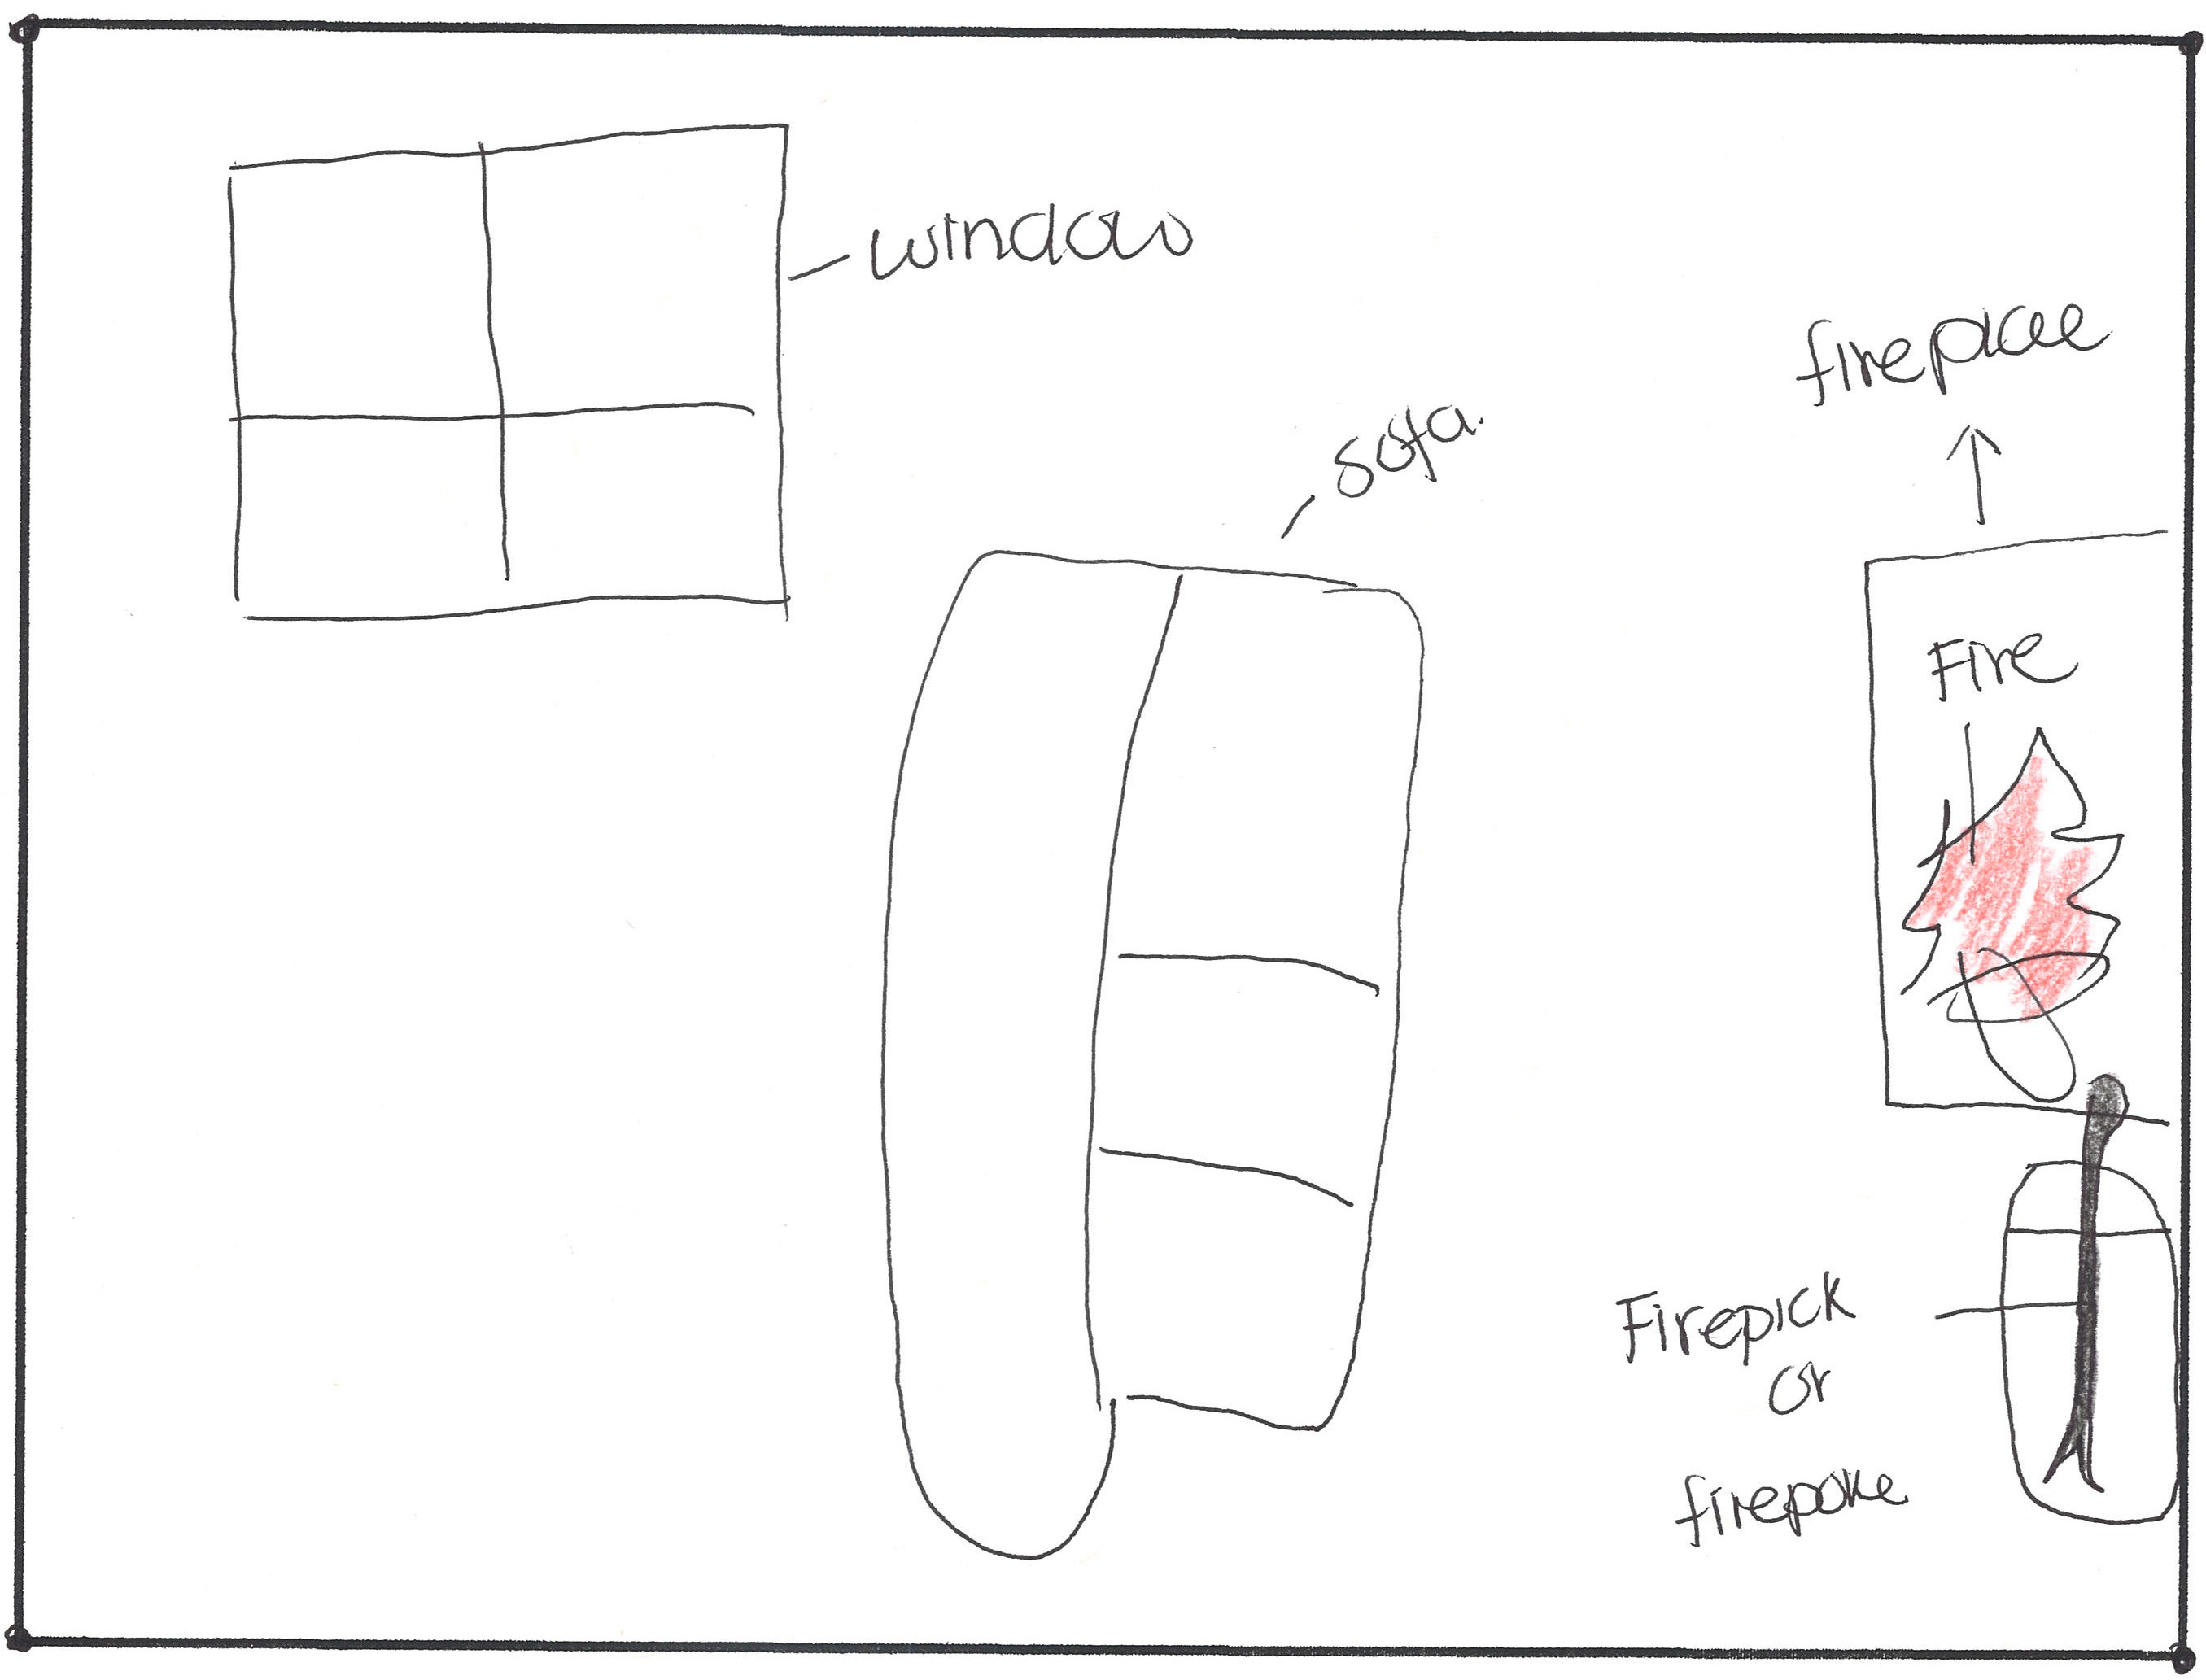 window
sofa.
fireplace
Fire
Firepick
or
firepoke